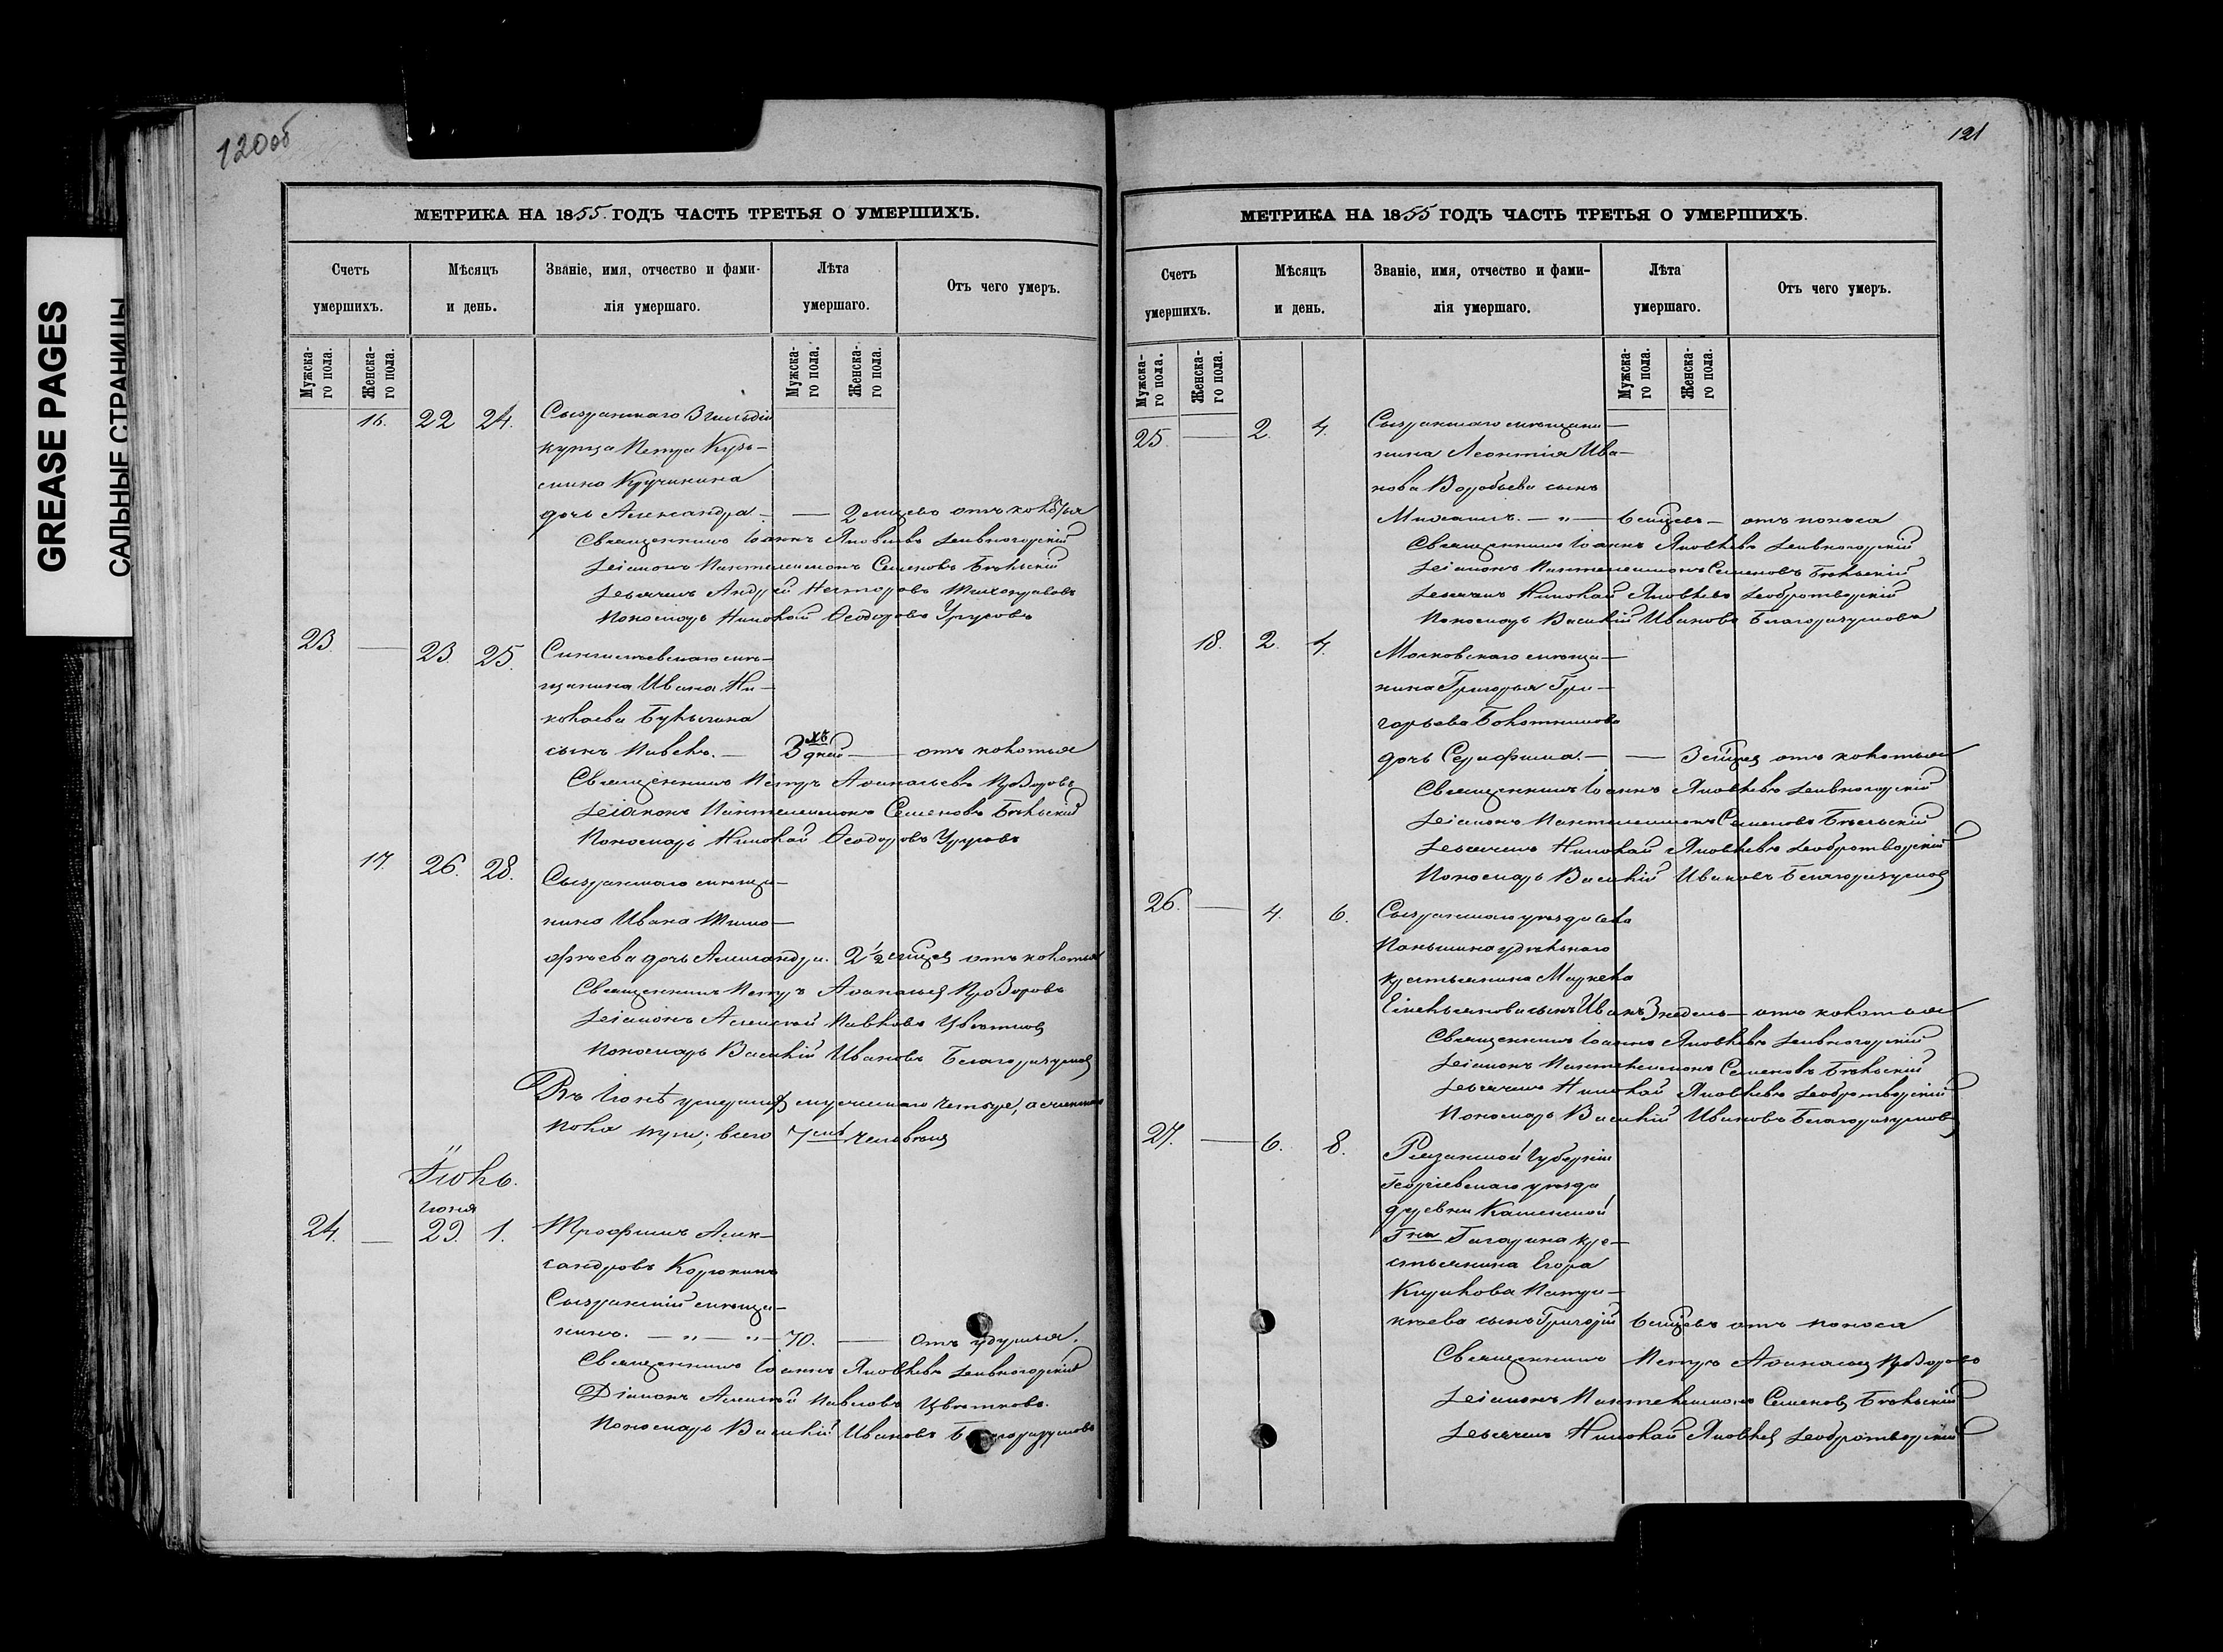 GREASE PAGES
САЛЬНЫЕ СТРАНИЦЫ
120об
МЕТРИКА НА 1855. ГОДЪ ЧАСТЬ ТРЕТЬЯ О УМЕРШИХЪ.
Счетъ умершихъ.
Мѣсяцъ и день.
Званіе, имя, отчество и фамилія умершаго.
Лѣта умершаго.
Отъ чего умеръ.
Мужскаго пола.
Женскаго пола.
Мужскаго пола.
Женскаго пола.
16. 22 24. Сызранскаго 3 гильдіи
купца Петра Кузь-
мина Кручинина
дочь Александра. — — 2 мѣсяцевъ отъ колотья
Священникъ Іоаннъ Яковлевъ Дивногорскій
Діаконъ Пантелеимонъ Семеновъ Бѣльскій
Дьячекъ Андрей Несторовъ Тихонравовъ
Пономарь Николай Ѳеодоровъ Урусовъ
23. — 23. 25. Сингилѣевскаго мѣ-
щанина Ивана Ни-
колаева
сынъ Павелъ. — 3хъ дней — отъ колотья
Священникъ Петръ Аѳанасьевъ Прозоровъ
Діаконъ Пантелеимонъ Семеновъ Бѣльскій
Пономарь Николай Ѳеодоровъ Урусовъ
17. 26. 28. Сызранскаго мѣща-
нина Ивана Тимо-
фѣева дочь Александра. 2 1/2 мѣсяцев отъ колотья
Священникъ Петръ Аѳанасьев Прозоровъ
Діаконъ Алексѣй Павловъ Цвѣтков
Пономарь Василій Ивановъ Благоразумов
Въ Іюнѣ умерших мужескаго четыре, а женскаго
пола три; всего 7мь человѣкъ
Іюль.
іюня
24. — 29. 1. Трофимъ Алек-
сандровъ
Сызранскій мѣща-
нинъ. — „ — „ — 70. — Отъ удушья.
Священникъ Іоаннъ Яковлевъ Дивногорскій
Діаконъ Алексѣй Павловъ Цвѣтковъ.
Пономарь Василій Ивановъ Благоразумовъ
121
МЕТРИКА НА 1855 ГОДЪ ЧАСТЬ ТРЕТЬЯ О УМЕРШИХЪ.
Счетъ умершихъ.
Мѣсяцъ и день.
Званіе, имя, отчество и фамилія умершаго.
Лѣта умершаго.
Отъ чего умеръ.
Мужскаго пола.
Женскаго пола.
Мужскаго пола.
Женскаго пола.
25. — 2. 4. Сызранскаго мѣща-
нина Леонтія Ива-
нова Воробьева сынъ
Михаилъ. — „ — 6 мѣсяцевъ — отъ поноса
Священникъ Іоаннъ Яковлевъ Дивногорскій
Діаконъ Пантелеимонъ Семеновъ Бѣльскій
Дьячекъ Николай Яковлевъ Добротворскій
Пономарь Василій Ивановъ Благоразумовъ
18. 2. 4. Московскаго мѣща-
нина Григорья Гри-
горьева
дочь Серафима. — — 3 мѣсяцев отъ колотья
Священникъ Іоаннъ Яковлевъ Дивногорскій
Діаконъ Пантелеимонъ Семеновъ Бѣльскій
Дьячекъ Николай Яковлевъ Добротворскій
Пономарь Василій Ивановъ Благоразумов
26. — 4. 6. Сызранскаго уѣзда села
Паньшина удѣльнаго
крестьянина Маркела
Емельянова сынъ Иванъ 3 недель — отъ колотья
Священникъ Іоаннъ Яковлевъ Дивногорскій
Діаконъ Пантелеимонъ Семеновъ Бѣльскій
Дьячекъ Николай Яковлевъ Добротворскій
Пономарь Василій Ивановъ Благоразумов
27. — 6. 8. Рязанской губерніи
уѣзда
деревни
Гна Гагарина кре-
стьянина Егора
Патри-
кѣева сынъ Григорій 6 мѣсяцевъ отъ поноса
Священникъ Петръ Аѳанасьев Прозоровъ
Діаконъ Пантелеимонъ Семенов Бѣльскій
Дьячекъ Николай Яковлев Добротворскій